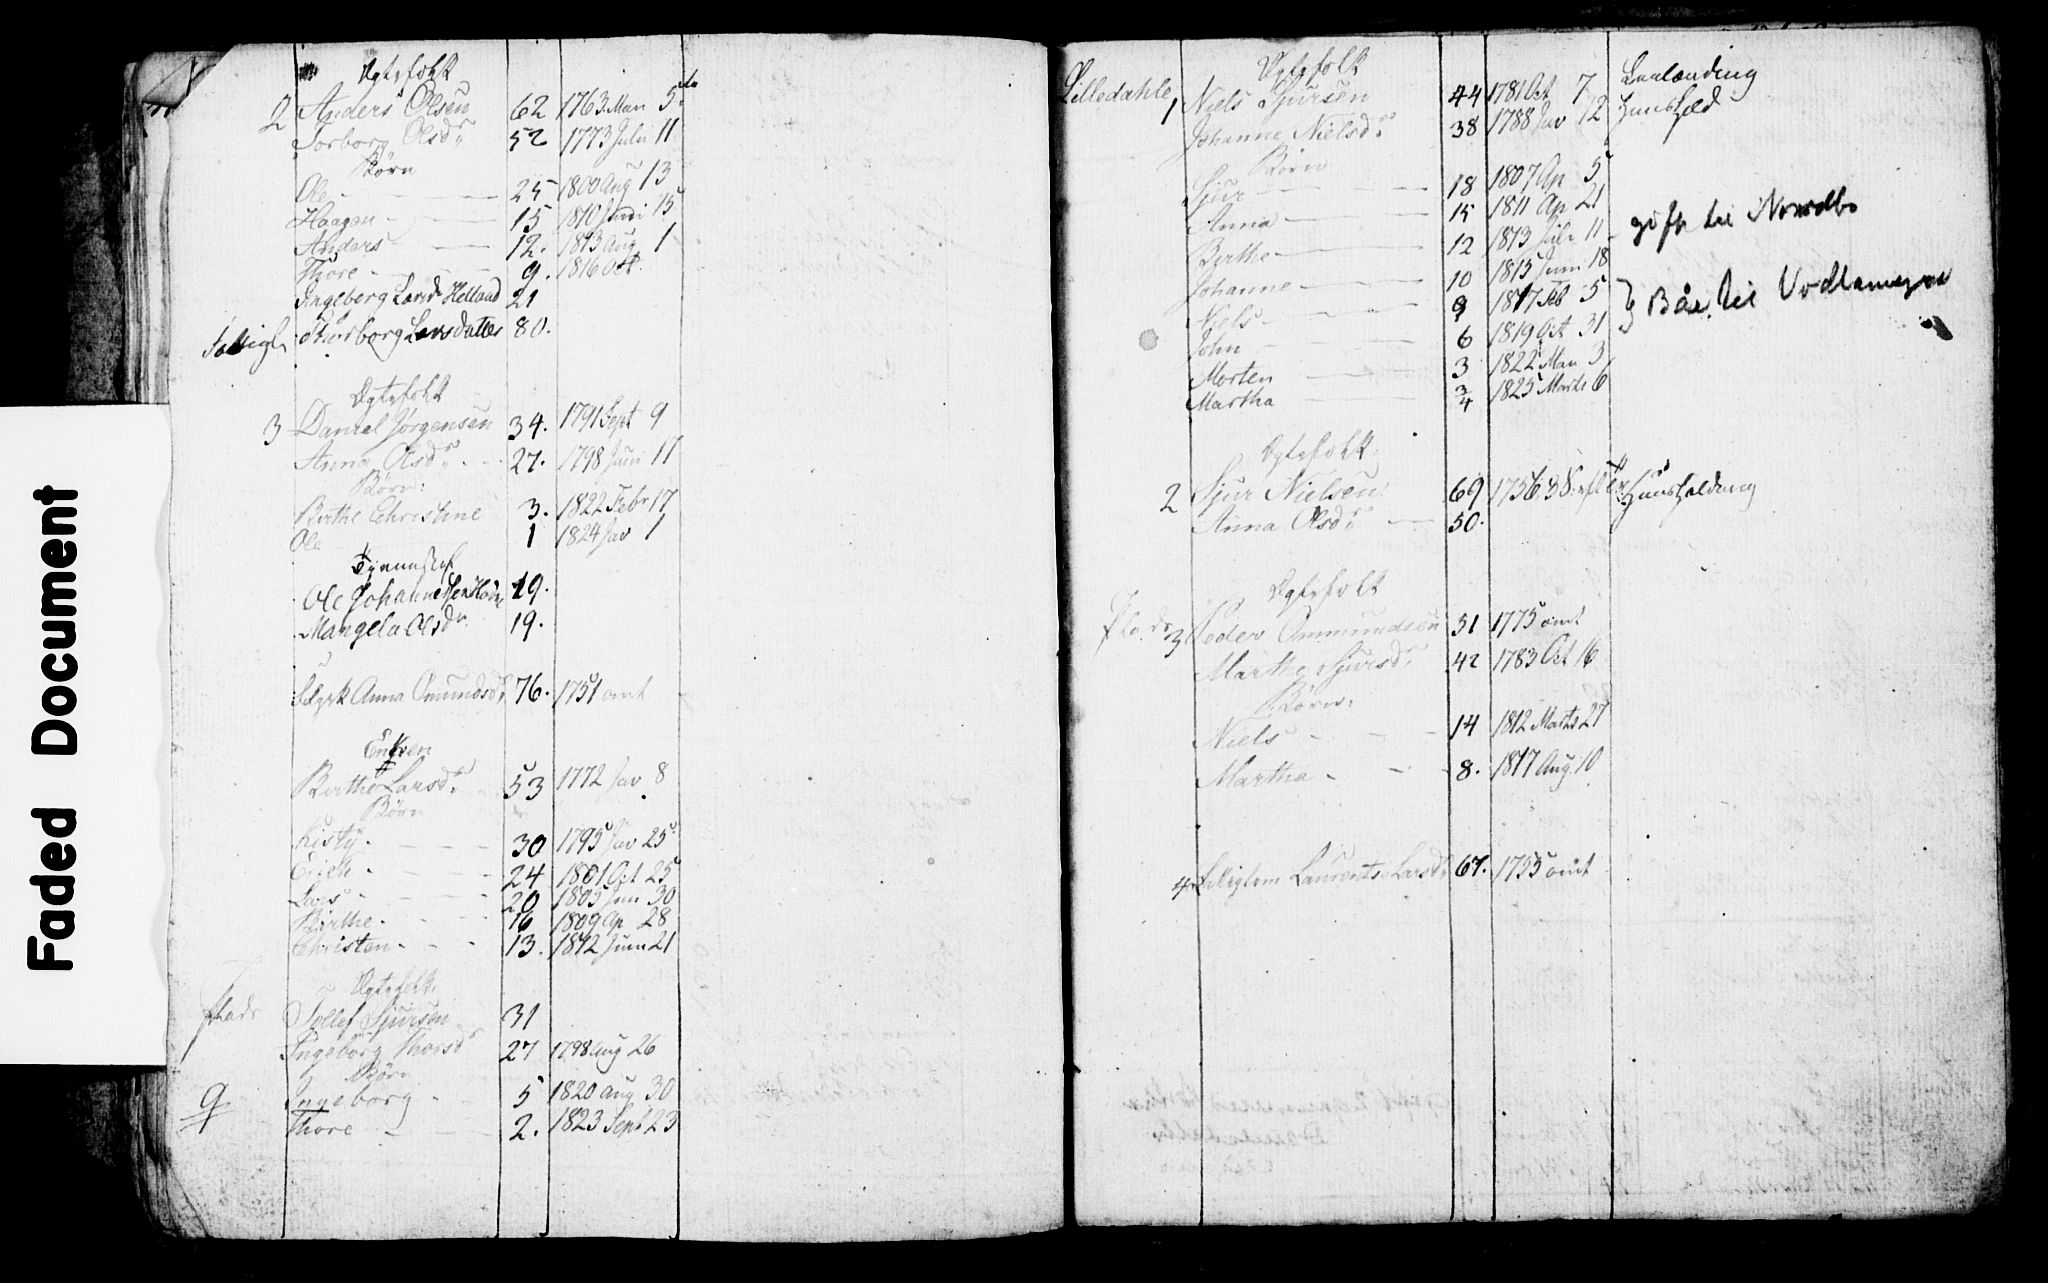 Faded Document
Egtefolk
2 Anders Olsen 62 1763 Mau 5
Torborg Olsdr 52 1773 Julii 11
Børn
Ole 25 1800 Aug 13
Haagen 15 1810 Junii 15
Anders 12. 1813 Aug 1
Thore 9. 1816 Oct.
Ingeborg Larsdr Helland 21
Thorborg Larsdatter 80.
Egtefolk
3 Daniel Jørgensen 34. 1791 Sept 9
Anna Olsdr 27. 1798 Juni 17
Børn:
Birthe Christine 3. 1822 Febr 17
Ole 1 1824 Jav 1
Ole Johannessen 19.
Mangela Olsdr 19.
Anna Omundsdr 76. 1751 omt
Enken
Birthe Larsdr 53 1772 Jav 8
Børn
Kisty 30 1795 Jav 25
Erich 24 1801 Oct 25
Lars 20 1805 Jun 30
Birthe 16 1809 Ap 28
Christen 13. 1812 Junii 21
Egtefolk
Plads Tollef Sjursen 31
Ingeborg Thorsdr 27 1798 Aug 26
Børn
Ingeborg 5 1820 Aug 30
9 Thore 2. 1823 Sept 23
Lilledahle
Egtefolk
1 Niels Sjursen 44 1781 Oct 7
Johanne Nielsdr 38 1788 Jav 12
Børn
Sjur 18 1807 Ap 5
Anna 15 1811 Ap 21
Birthe 12 1813 Julii 11 gift til
Johanne 10 1815 Junii 18
Niels 9 1817 Feb 5 til
John 6 1819 Oct 31
Morten 3 1822 Mau 3
Martha 3/4 1825 Marts 6
Egtefolk
2 Sjur Nielsen 69 1756 Huusholdning
Anna Olsdr 50.
Egtefolk
Plads 3 Peder Ommundsen 51 1775 omt
Marthe Sjursdr 42 1783 Oct 16
Børn:
Niels 14 1812 Marts 27
Martha 8. 1817 Aug. 10
4 Larsdr 67. 1755 omt